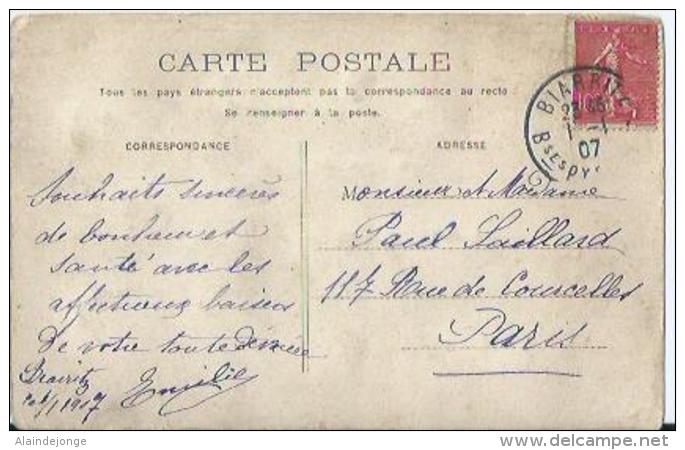 CARTE POSTALE
Tous les pays étrangers n'acceptent pas la correspondance au recto
Se renseigner à la poste.
CORRESPONDANCE
ADRESSE
BIARRITZ
1-1
07
Bses PYr
Souhaits sincères
de bonheur et
santé avec les
affectueux baisers
de votre toute dévouée
Emilie
1907
Monsieur et Madame
Paul Saillard
117 Rue de Courcelles
Paris
Alaindejonge
www.delcampe.net